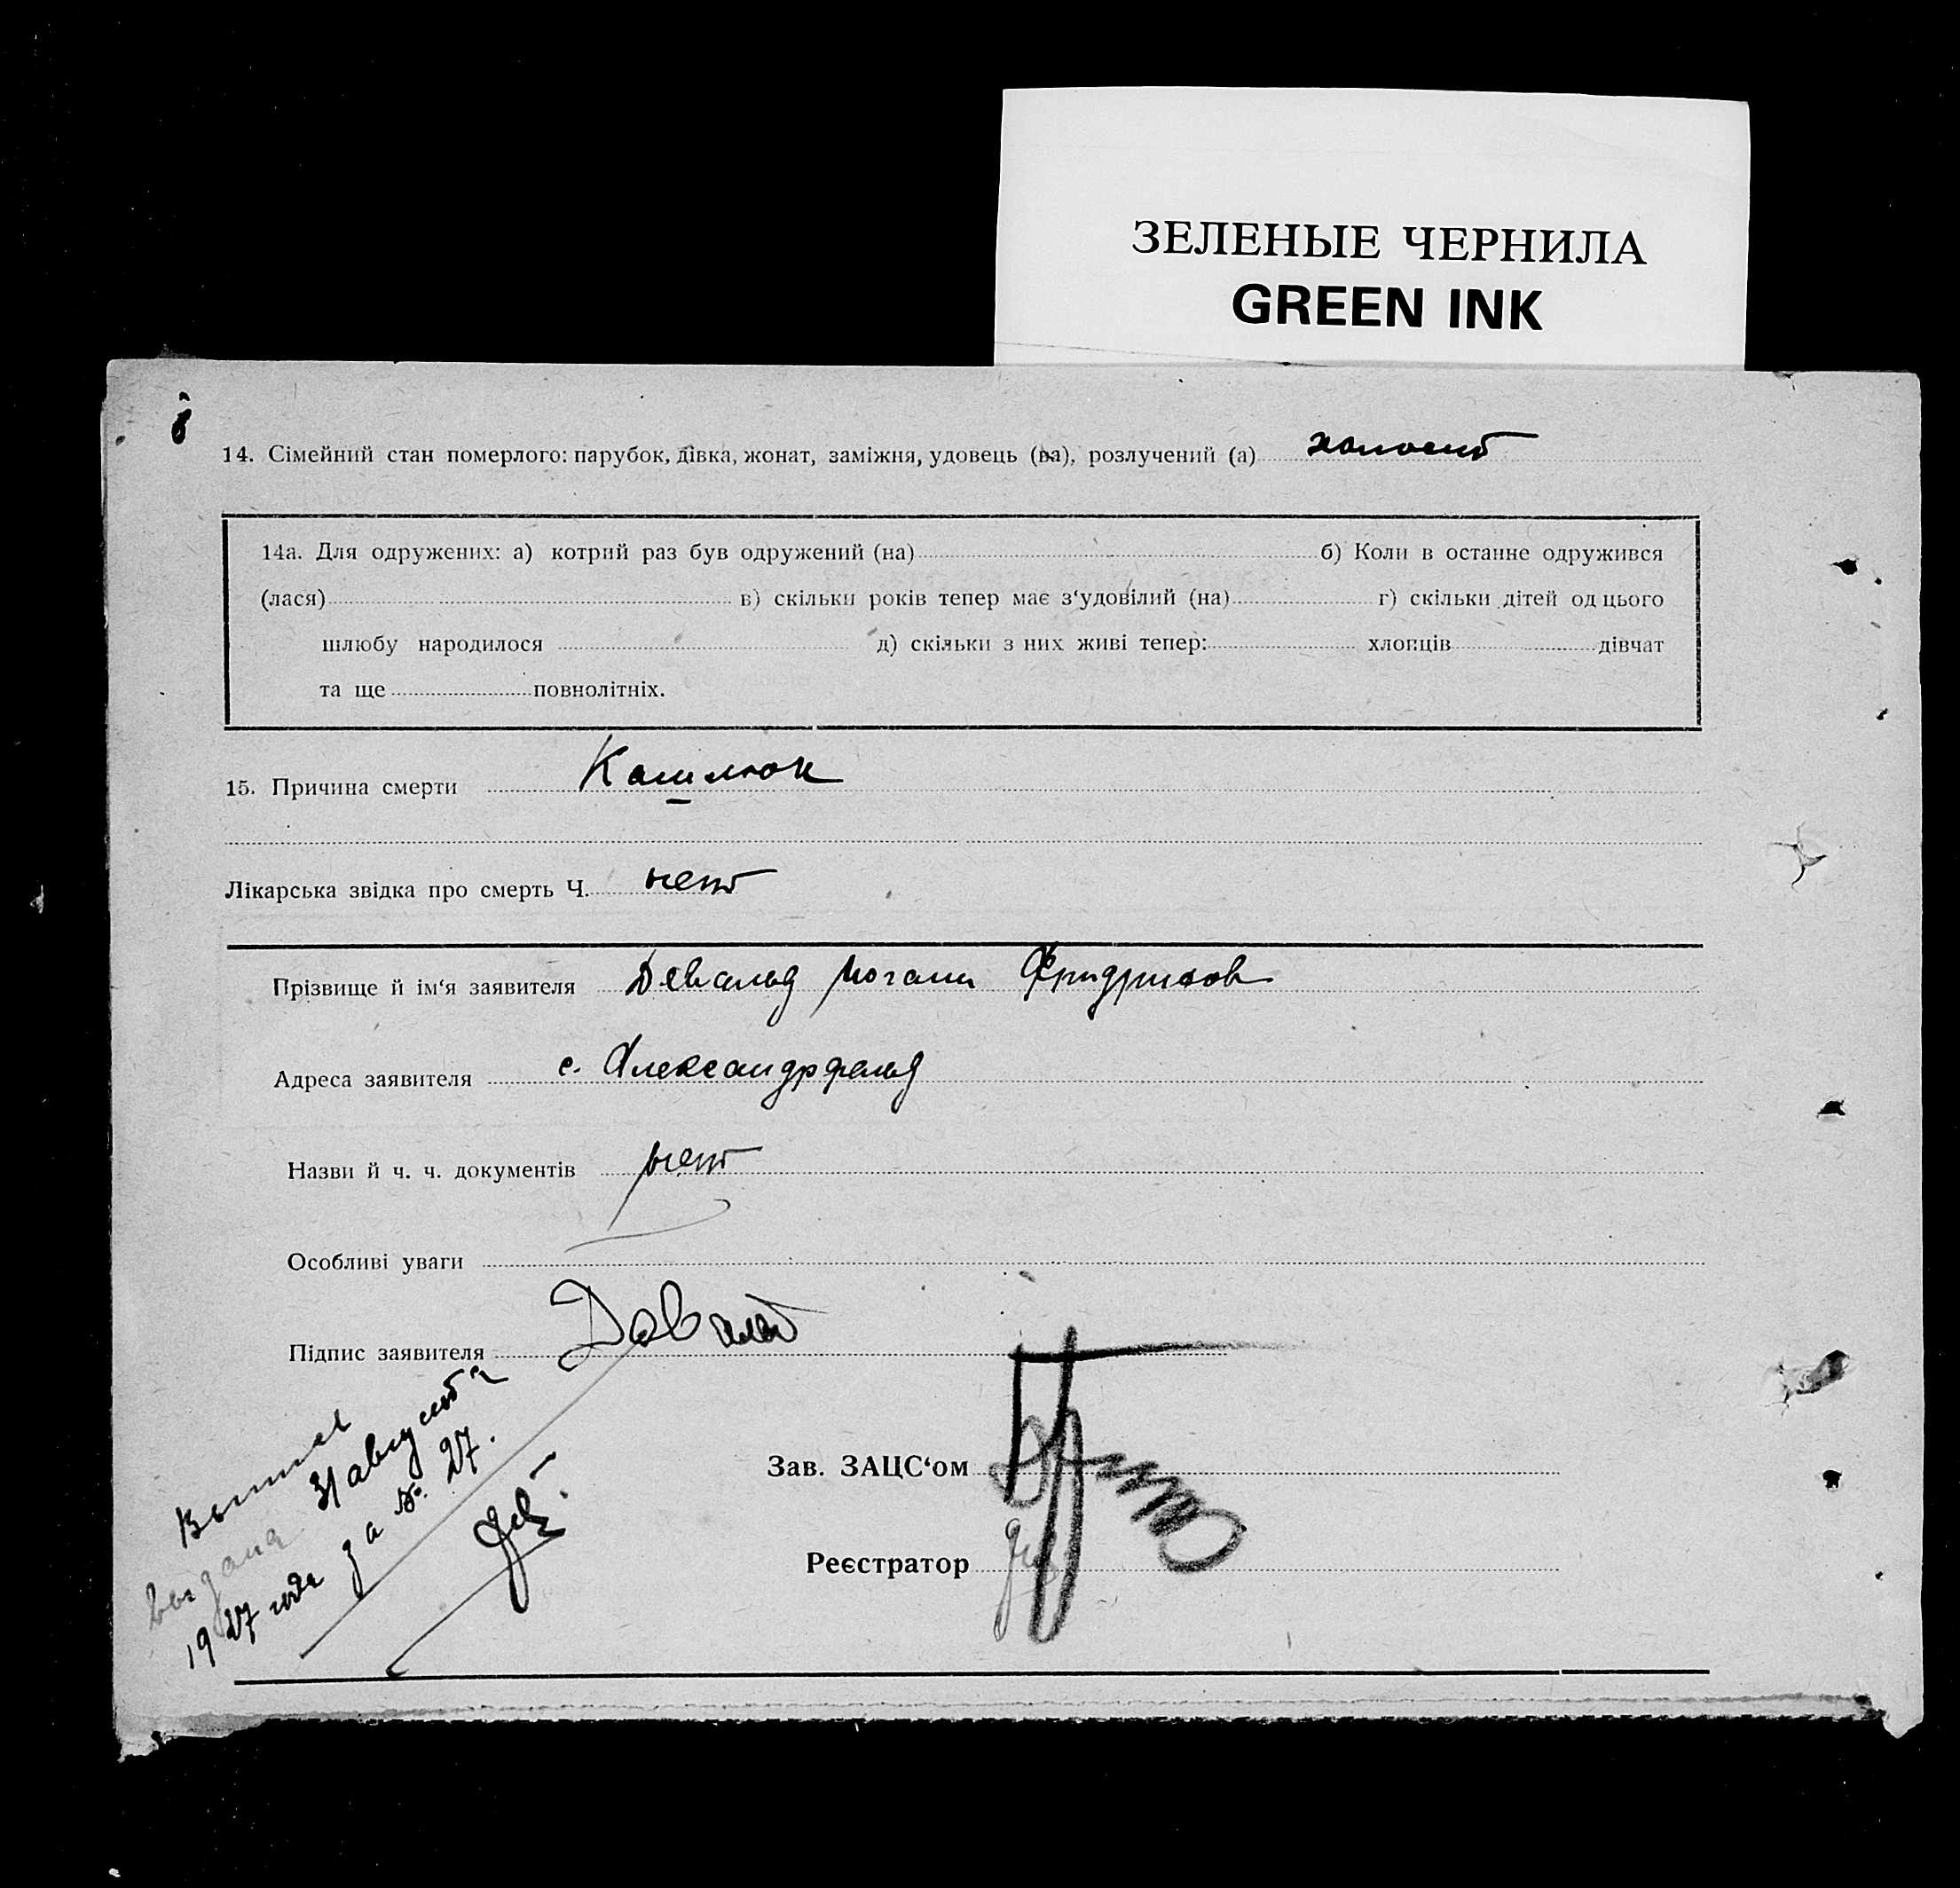 ЗЕЛЕНЫЕ ЧЕРНИЛА
GREEN INK
8
14. Сімейний стан померлого: парубок, дівка, жонат, заміжня, удовець (ва), розлучений (а) холост
14а. Для одружених: а) котрий раз був одружений (на) б) Коли в останне одружився
(лася) в) скільки років тепер має з‘удовілий (на) г) скільки дітей од цього
шлюбу народилося д) скільки з них живі тепер: хлопців дівчат
та ще повнолітніх.
15. Причина смерти Кашлюк
Лікарська звідка про смерть Ч. нет
Прізвище й ім‘я заявителя Девальд Иоган Фридрихов
Адреса заявителя с. Александрфельд
Назви й ч. ч. документів нет
Особливі уваги
Підпис заявителя
выдана 31 августа
1927 года за №. 27.
Зав. ЗАЦС‘ом
Реєстратор